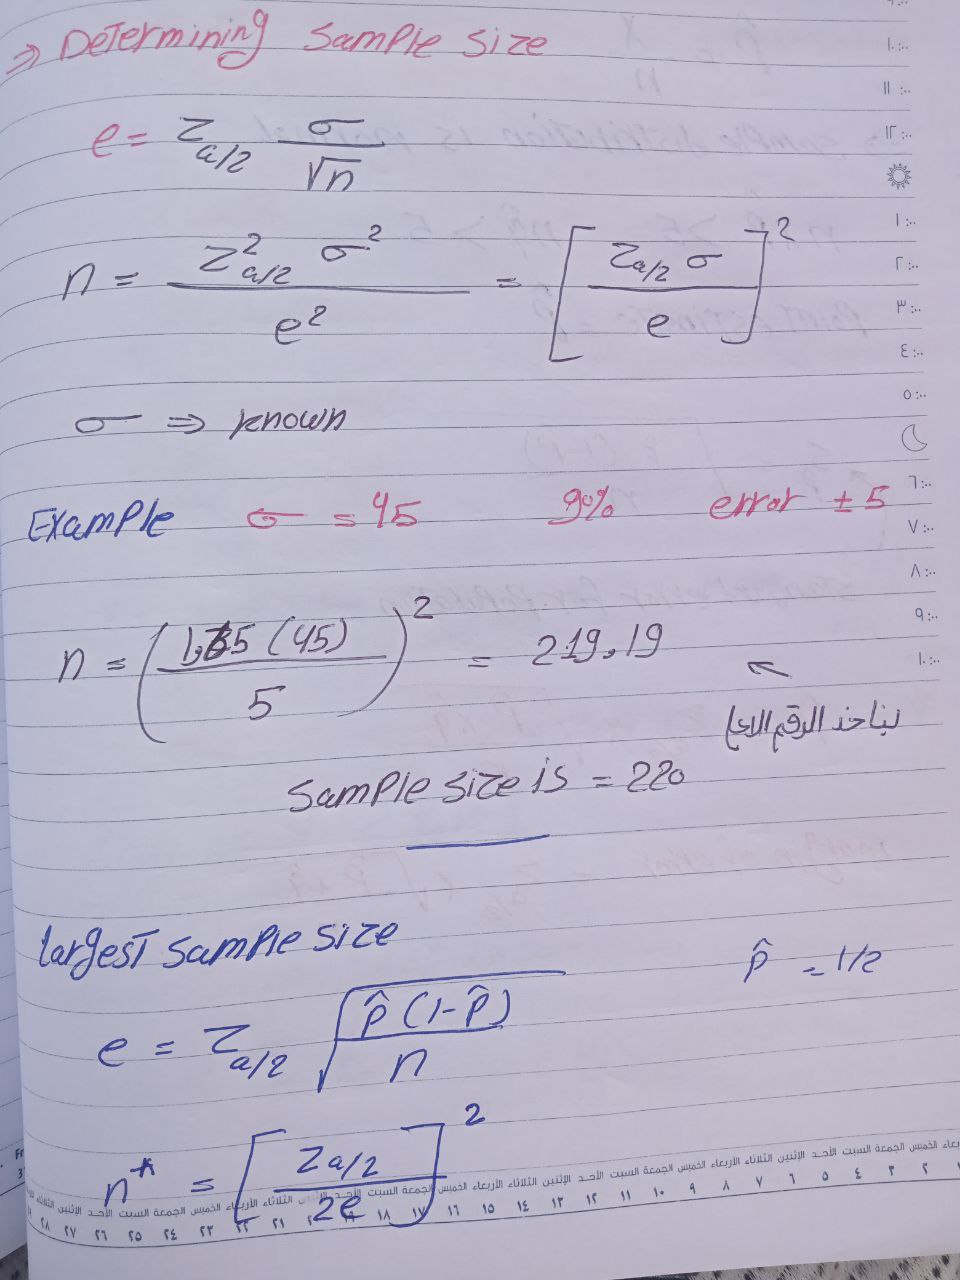 ⇒ Determining sample size
e = Z a/2 σ / √n
n = Z² a/2 σ² / e² = [ Z a/2 σ / e ]²
σ ⇒ known
Example σ = 45 90% error ± 5
n = ( 1,65 (45) / 5 )² = 219.19
بناخذ الرقم الاعلى
sample size is = 220
largest sample size
p̂ = 1/2
e = Z a/2 √ p̂ (1-p̂) / n
n* = [ Z a/2 / 2e ]²
١٠:٠٠
١١:٠٠
١٢:٠٠
١:٠٠
٢:٠٠
٣:٠٠
٤:٠٠
٥:٠٠
٦:٠٠
٧:٠٠
٨:٠٠
٩:٠٠
١٠:٠٠
الخميس الجمعة السبت الأحد الإثنين الثلاثاء الأربعاء الخميس الجمعة السبت الأحد الإثنين الثلاثاء الأربعاء الخميس الجمعة السبت الأحد الثلاثاء الأربعاء الخميس الجمعة السبت الأحد الإثنين
٢ ٣ ٤ ٥ ٦ ٧ ٨ ٩ ١٠ ١١ ١٢ ١٣ ١٤ ١٥ ١٦ ١٧ ١٨ ١٩ ٢١ ٢٢ ٢٣ ٢٤ ٢٥ ٢٦ ٢٧ ٢٨